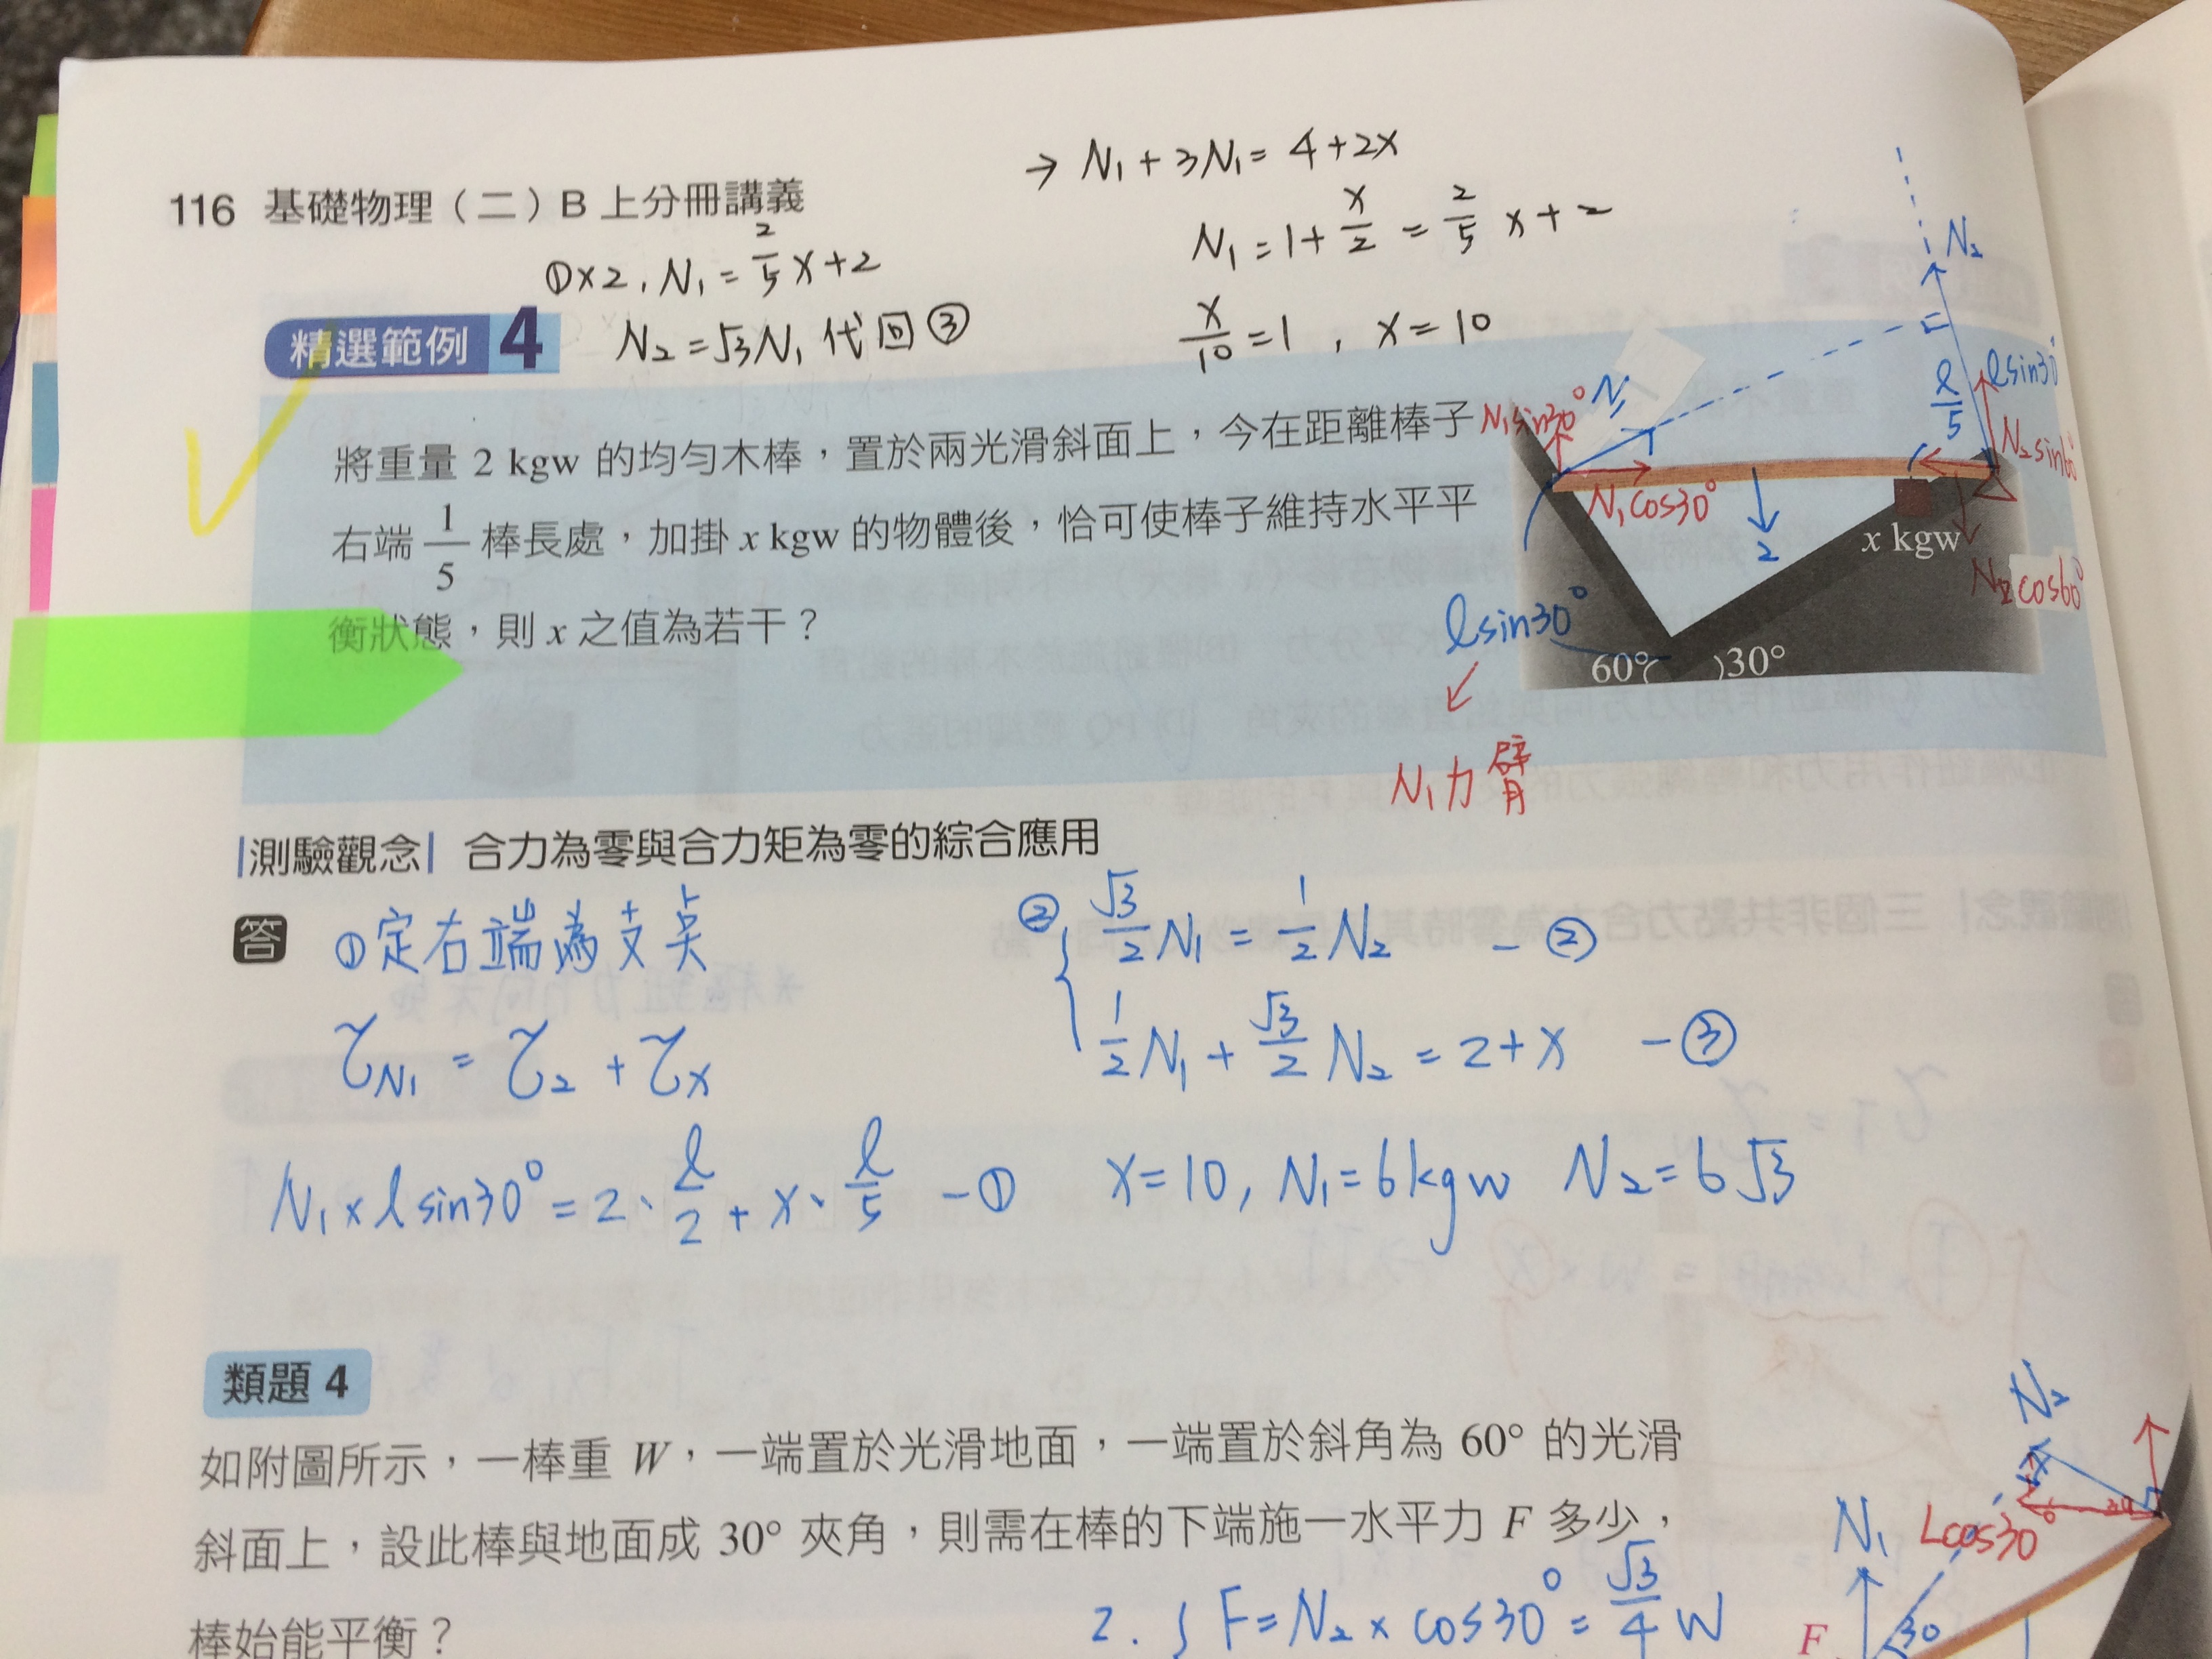 → N₁ + 3N₁ = 4 + 2x
116 基礎物理（二）B 上分冊講義
①×2, N₁ = 2/5 x + 2
N₁ = 1 + x/2 = 2/5 x + 2
精選範例 4
N₂ = √3N₁ 代回③
x/10 = 1, x = 10
將重量 2 kgw 的均勻木棒，置於兩光滑斜面上，今在距離棒子
右端 1/5 棒長處，加掛 x kgw 的物體後，恰可使棒子維持水平平
衡狀態，則 x 之值為若干？
N₂
ℓ/5
ℓsin30°
N₁sin30°
N₁
N₂sin60°
N₁cos30°
2
x kgw
N₂cos60°
ℓsin30°
60°
30°
N₁力臂
|測驗觀念| 合力為零與合力矩為零的綜合應用
答 ①定右端為支点
τN₁ = τ₂ + τx
N₁×ℓsin30° = 2·ℓ/2 + x·ℓ/5 –①
② √3/2 N₁ = 1/2 N₂ –②
1/2 N₁ + √3/2 N₂ = 2 + x –③
x = 10, N₁ = 6kgw N₂ = 6√3
類題 4
如附圖所示，一棒重 W，一端置於光滑地面，一端置於斜角為 60° 的光滑
斜面上，設此棒與地面成 30° 夾角，則需在棒的下端施一水平力 F 多少，
棒始能平衡？
2. { F = N₂ × cos30° = √3/4 W
N₂
N₁
Lcos30°
F
30